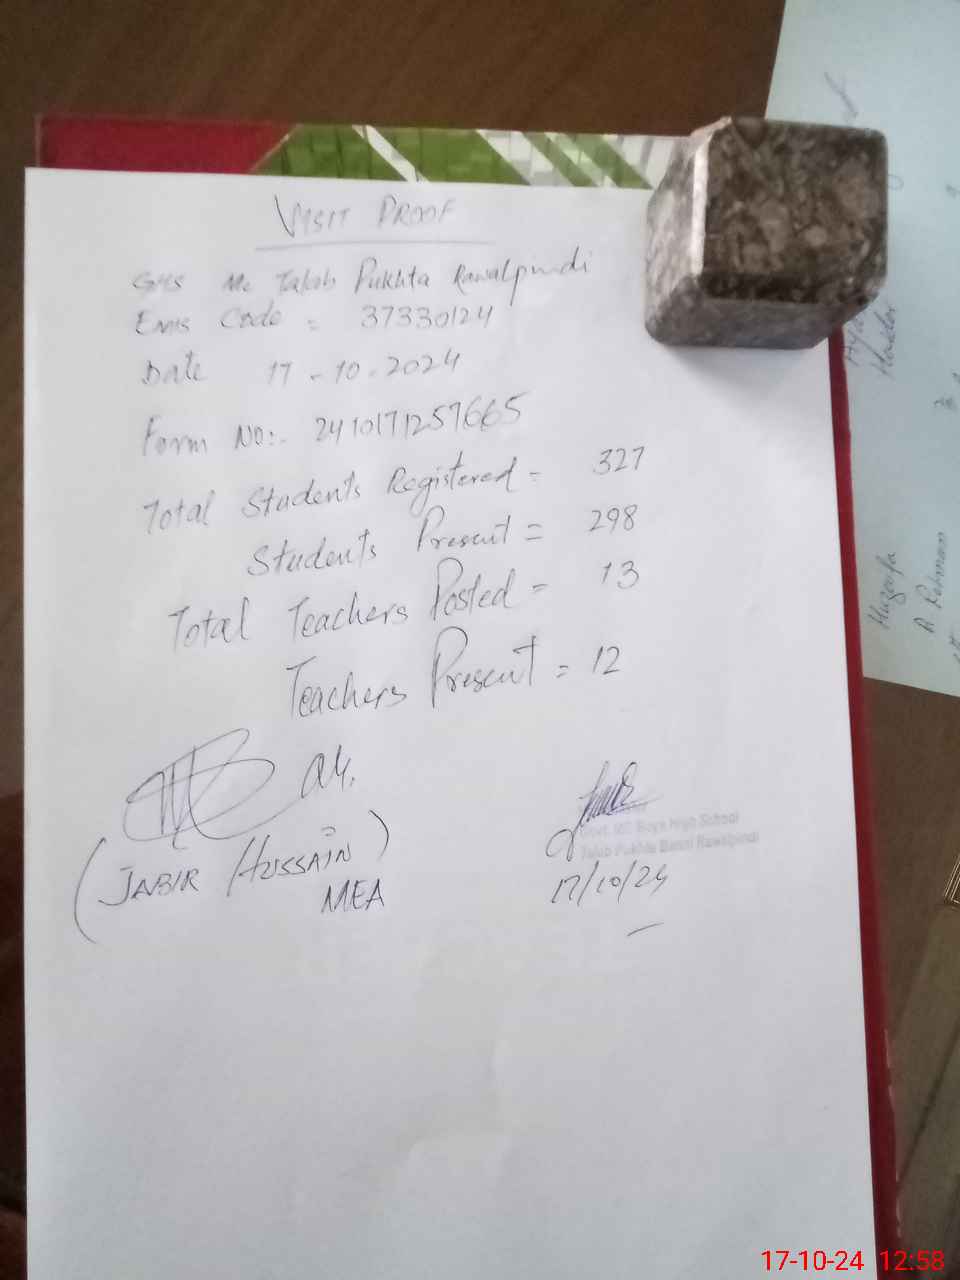 VISIT PROOF
GHS Mc Talab Pukhta Rawalpindi
Emis Code = 37330124
Date 17-10-2024
Form No:- 2410171257665
Total Students Registered = 327
Students Present = 298
Total Teachers Posted = 13
Teachers Present = 12
(JABIR HUSSAIN)
MEA
Govt. MC Boys High School
Talab Pukhta Rawalpindi
17/10/24
Huzaifa
A. Rehman
Haider
17-10-24 12:58